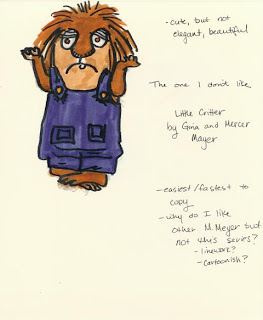 - cute, but not
elegant, beautiful
The one I don't like
Little Critter
by Gina and Mercer
Mayer
- easiest/fastest to
copy
- why do I like
other M. Meyer but
not this series?
- linework?
- cartoonish?